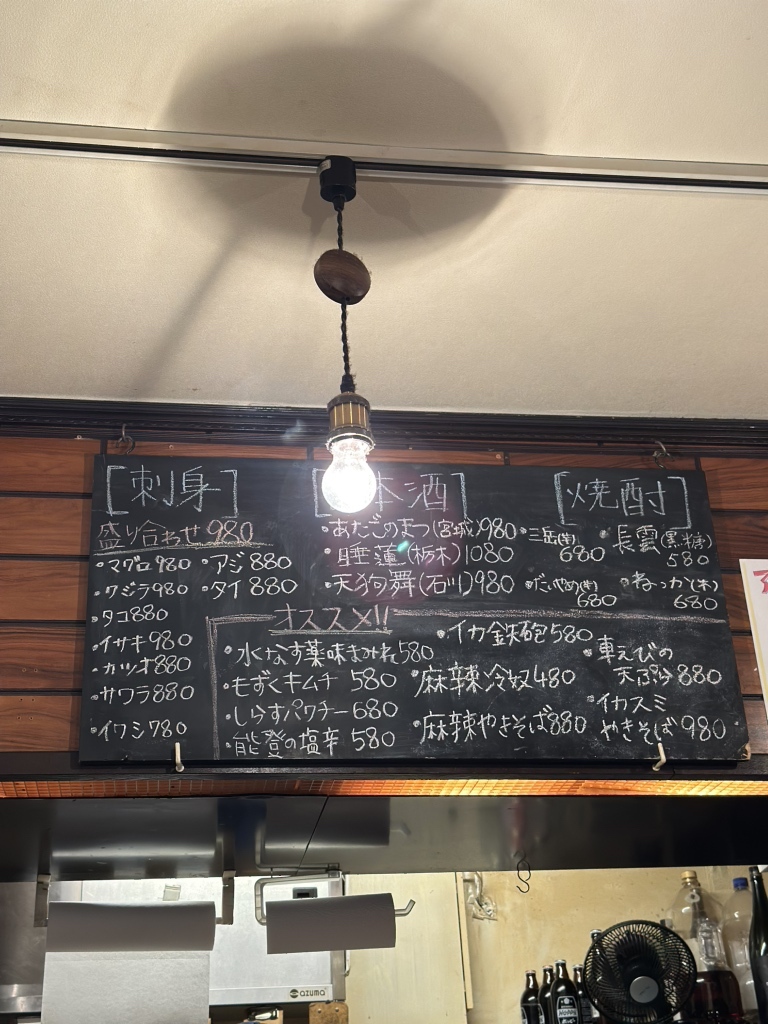 [刺身]
盛り合わせ 980
・マグロ 980
・アジ 880
・クジラ 980
・タイ 880
・タコ 880
・イサキ 980
・カツオ 880
・サワラ 880
・イワシ 780
本酒]
・あたごのまつ(宮城) 980
・睡蓮(栃木) 1080
・天狗舞(石川) 980
[焼酎]
・三岳(芋) 680
・長雲(黒糖) 580
・だいやめ(芋) 680
・ねっか(米) 680
オススメ!!
・水なす薬味まみれ 580
・もずくキムチ 580
・しらすパクチー 680
・能登の塩辛 580
・イカ鉄砲 580
・麻辣冷奴 480
・麻辣やきそば 880
・車えびの
天ぷら 880
・イカスミ
やきそば 980
azuma